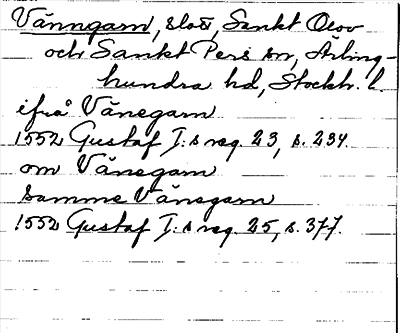 Vänngarn, slott, Sankt Olov
och Sankt Pers sn, Ärling-
hundra hd, Stockh. l.
ifrå Vänegarn
1552 Gustaf I:s reg. 23, s. 234.
om Vänegarn
samme Vänegarn
1552 Gustaf I:s reg. 25, s. 377.